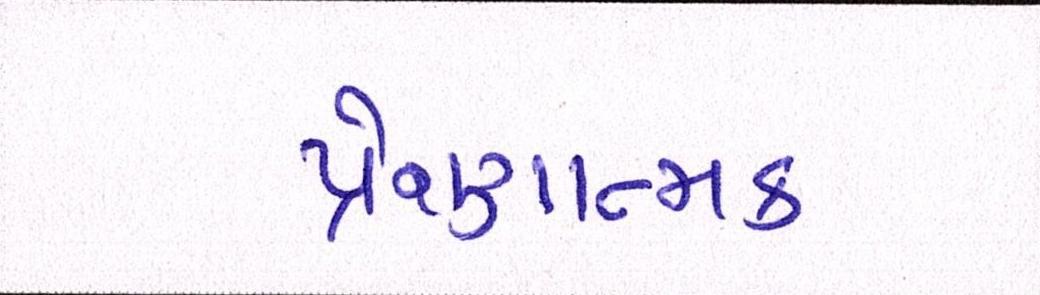 પ્રેરણાત્મક